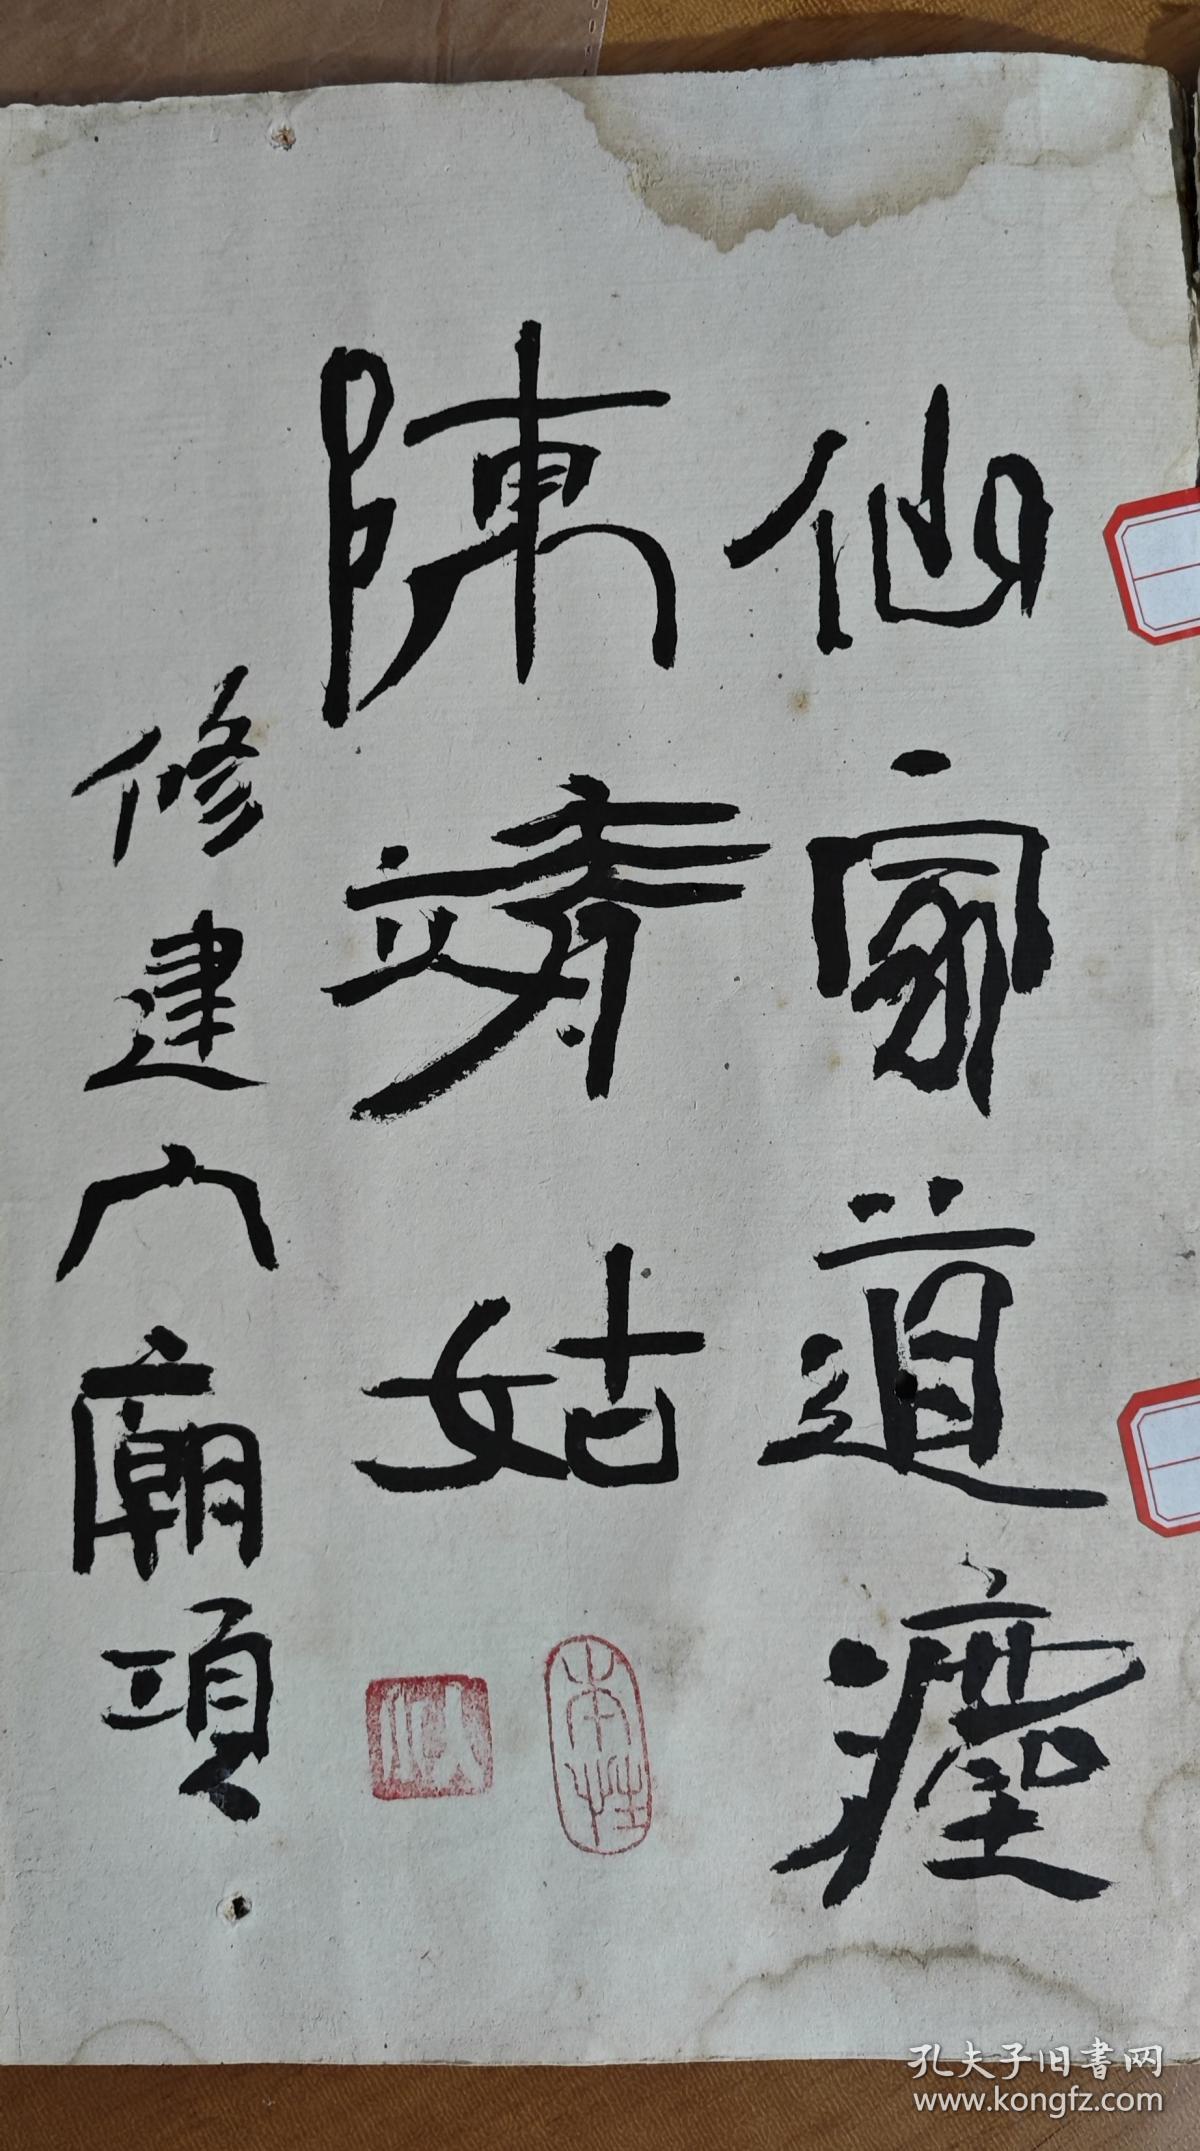 仙家道
陳靖姑
修建廟項
本性
孔夫子旧書网
www.kongfz.com